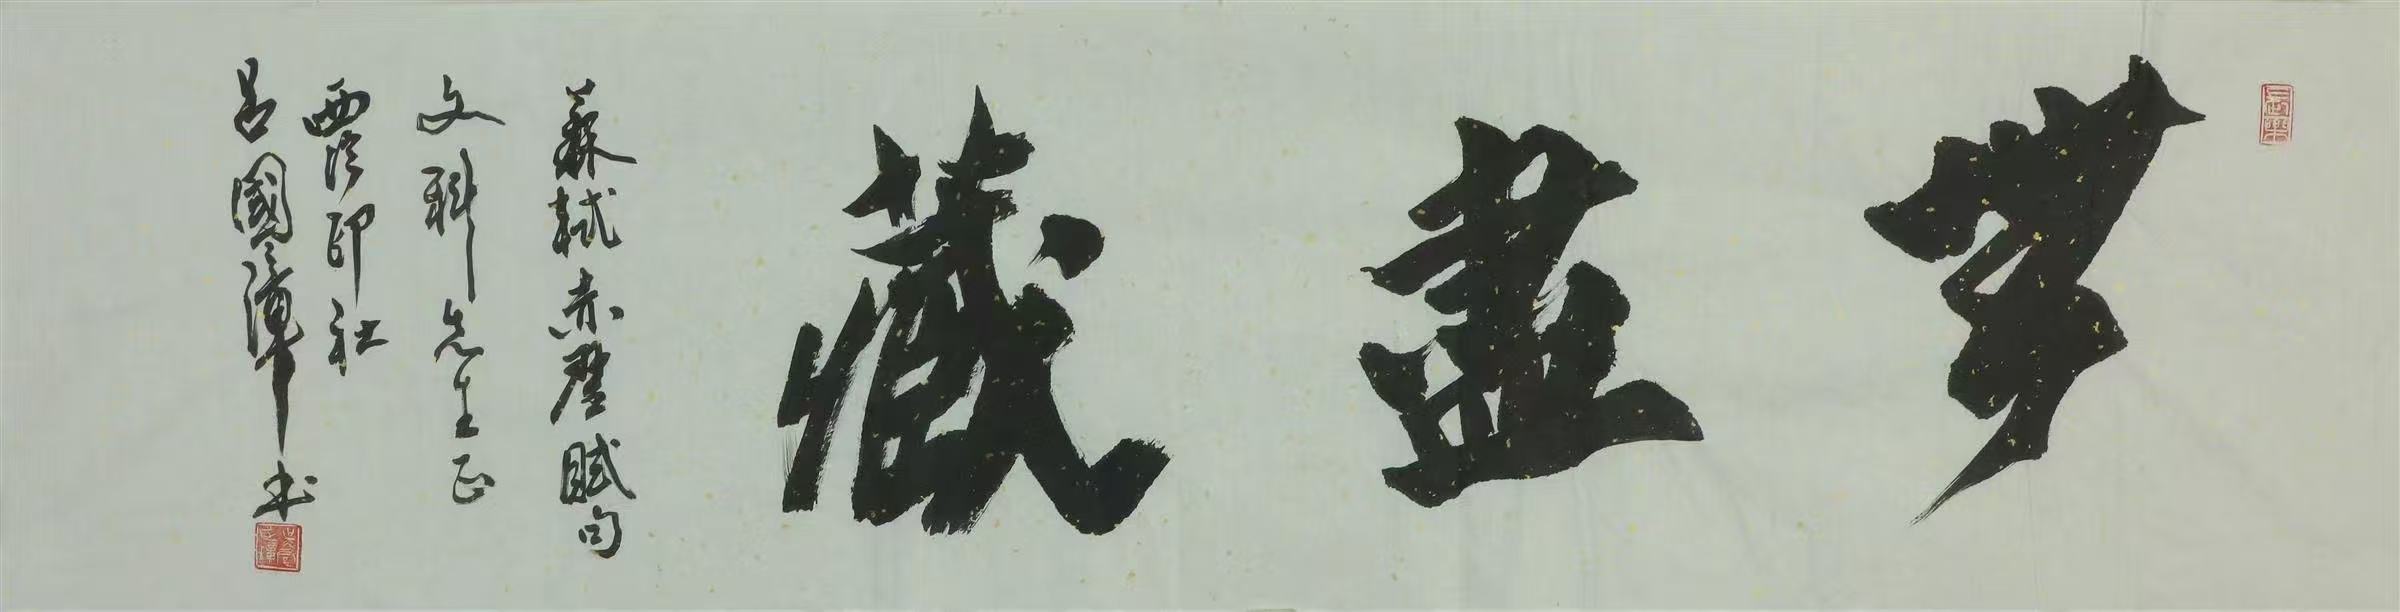 無盡藏
蘇軾赤壁賦句
文科先生正
西泠印社
呂國璋書